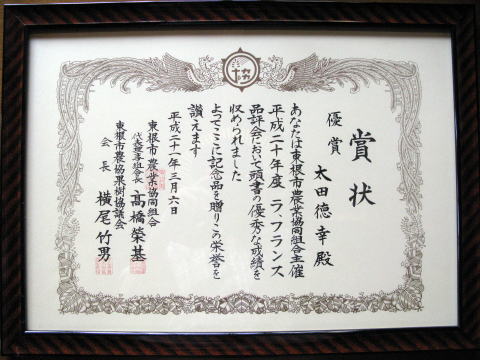 協
賞状
優賞
太田徳幸殿
あなたは東根市農業協同組合主催
平成二十年度ラ、フランス
品評会において頭書の優秀な成績を
収められました
よってここに記念品を贈りこの栄誉を
讃えます
平成二十一年三月六日
東根市農業協同組合
代表理事組合長 髙橋榮基
東根市農協果樹協議会
会長 横尾竹男